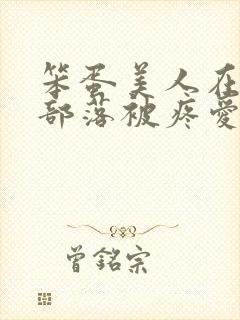 笨蛋美人在
部落被疼愛
曾銘宗